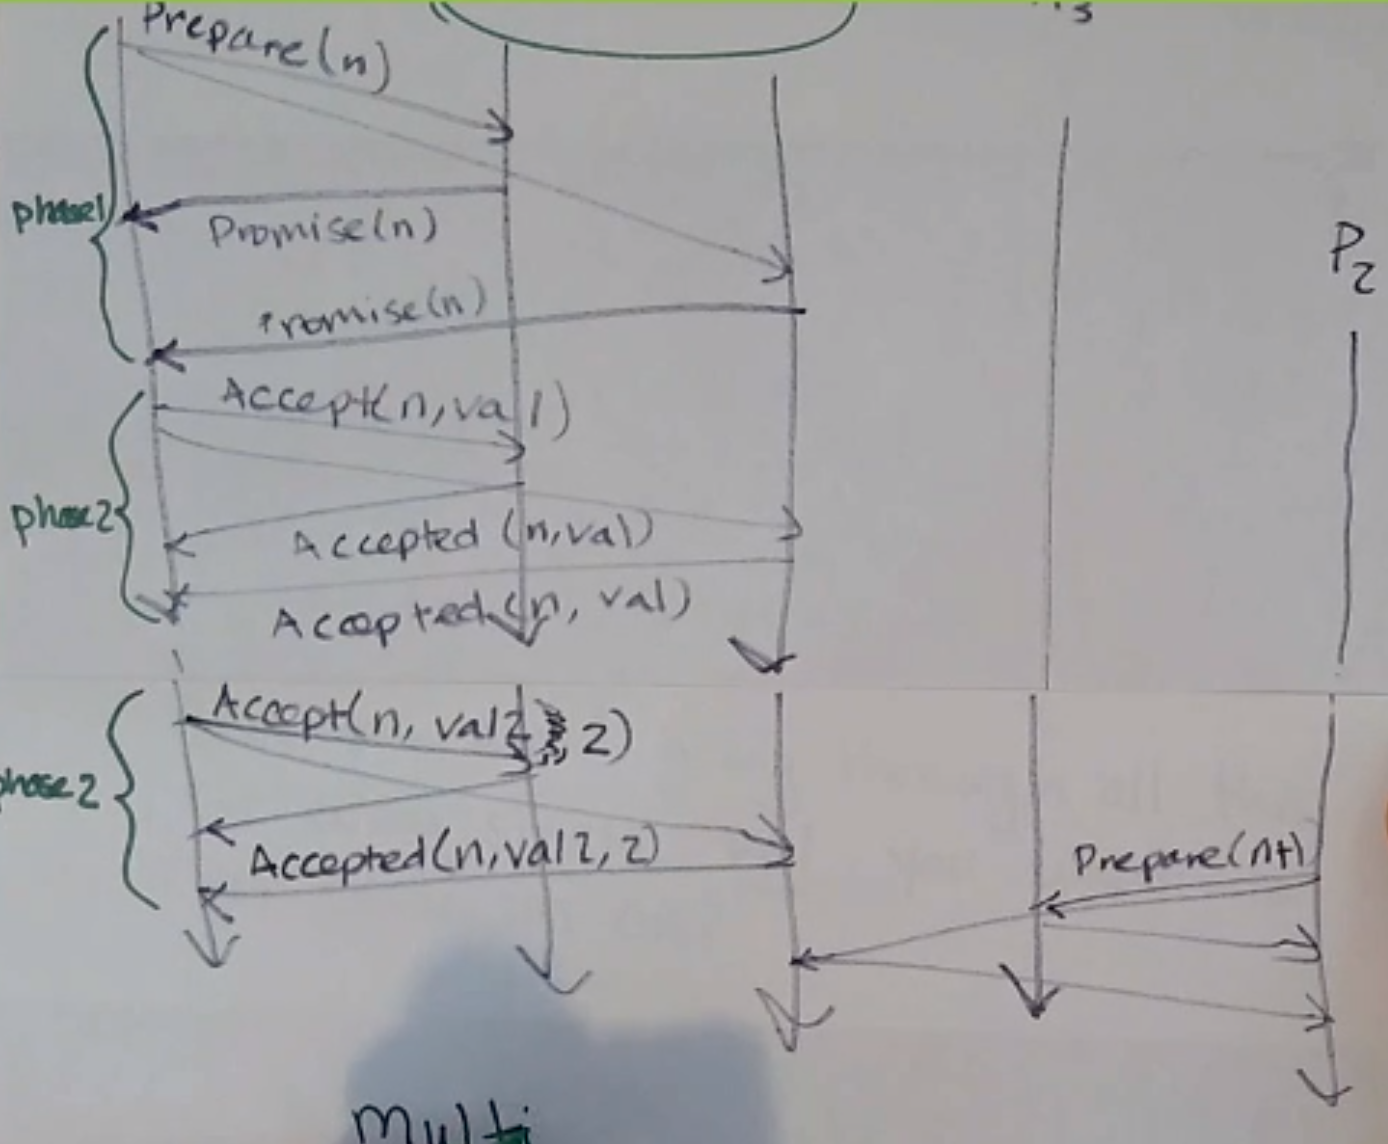 Prepare(n)
phase1
Promise(n)
P2
Promise(n)
Accept(n,val)
phase2
Accepted (n,val)
Accepted(n, val)
Accept(n, val2, 2)
phase2
Accepted(n,val2,2)
Prepare(n+1)
Multi